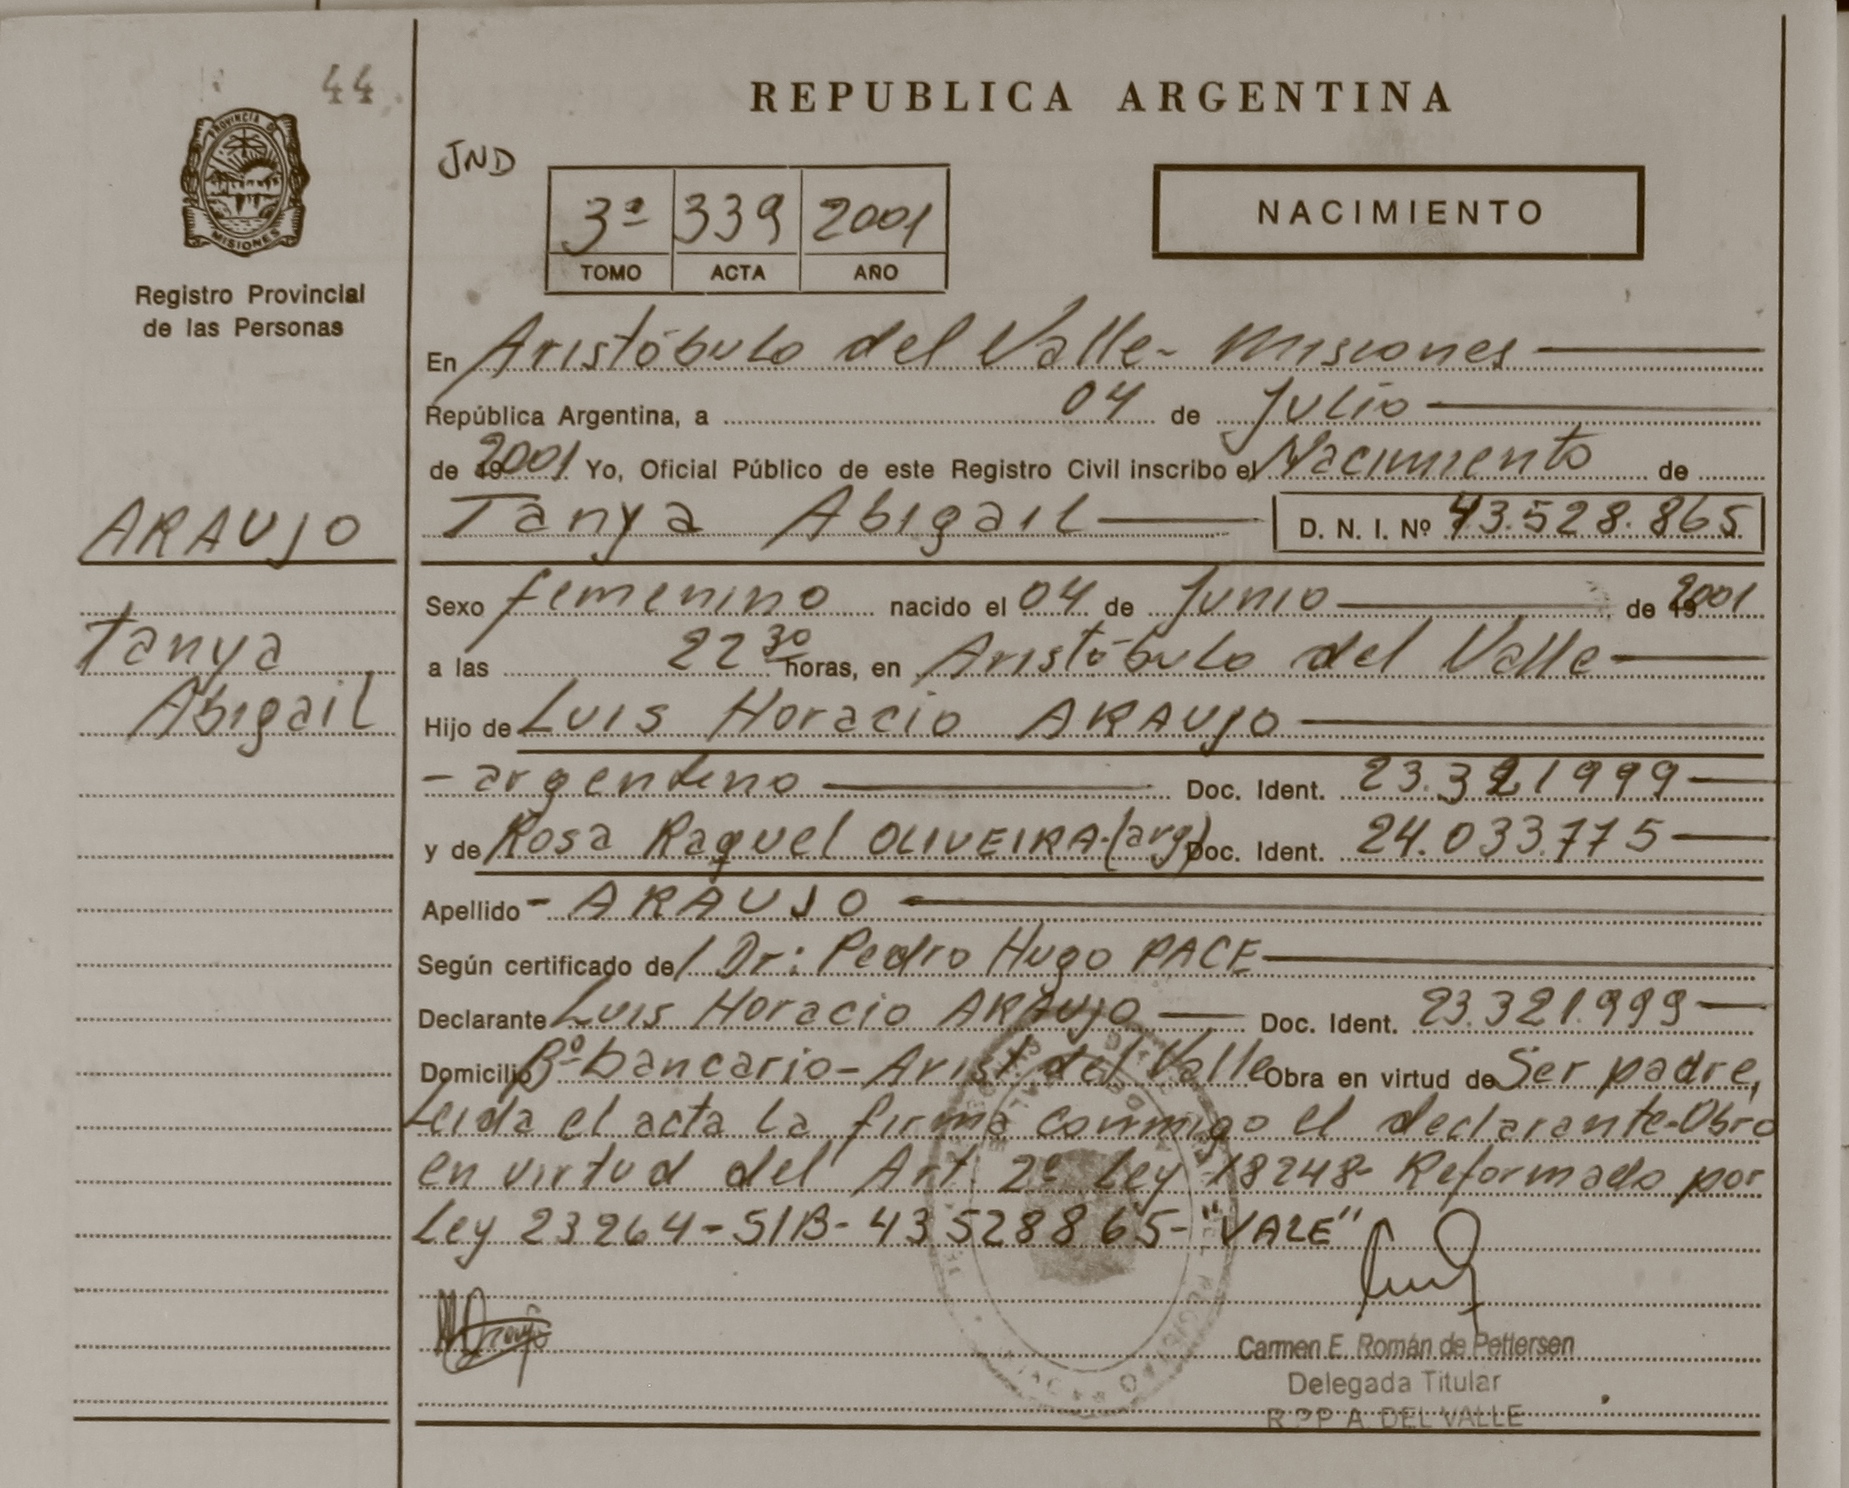 44
PROVINCIA DE
MISIONES
Registro Provincial
de las Personas
ARAUJO
Tanya
Abigail
REPUBLICA ARGENTINA
JND
3ª 339 2001
TOMO ACTA AÑO
NACIMIENTO
En Aristóbulo del Valle - Misiones
República Argentina, a 04 de Julio
de 2001 Yo, Oficial Público de este Registro Civil inscribo el Nacimiento de
Tanya Abigail D. N. I. Nº 43.528.865
Sexo femenino nacido el 04 de Junio de 2001
a las 22 30 horas, en Aristóbulo del Valle
Hijo de Luis Horacio ARAUJO
- argentino Doc. Ident. 23.321999
y de Rosa Raquel OLIVEIRA-(arg) Doc. Ident. 24.033.775
Apellido - ARAUJO
Según certificado del Dr: Pedro Hugo PACE
Declarante Luis Horacio ARAUJO Doc. Ident. 23.321.999
Domicilio Bº bancario - Arist. del Valle Obra en virtud de Ser padre,
Leida el acta la firma conmigo el declarante-Obro
en virtud del Art. 2º Ley 18248- Reformado por
Ley 23264 - S/B - 43528865 - "VALE"
Carmen E. Román de Pettersen
Delegada Titular
R.P.P. A. DEL VALLE